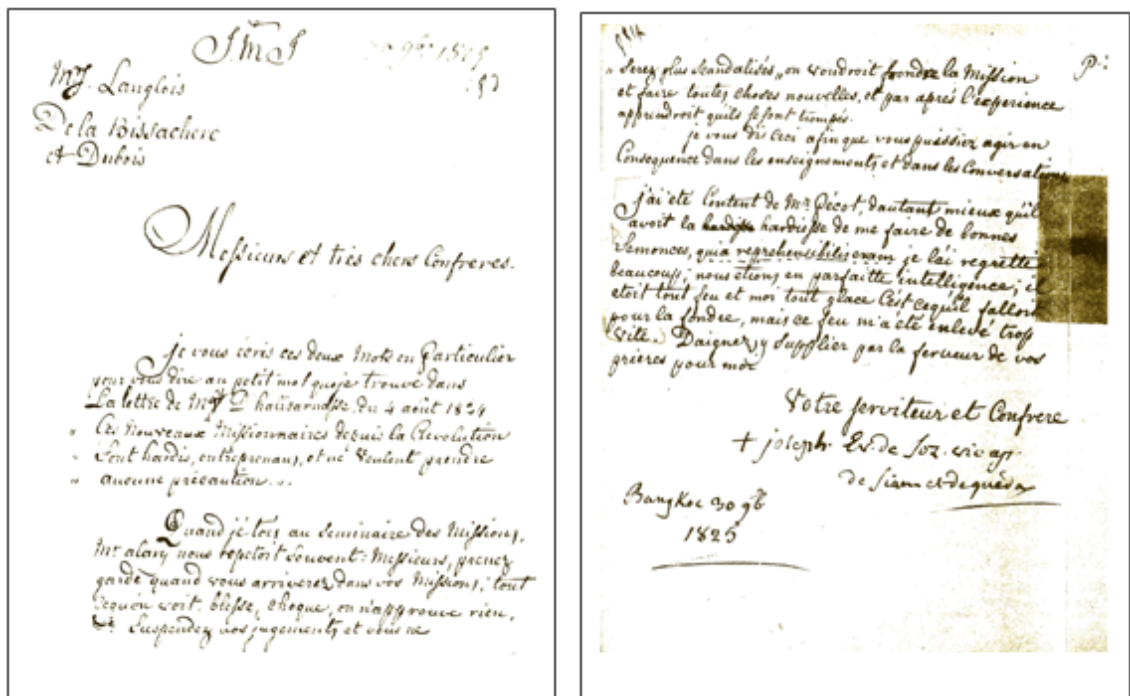 J.M.J
30 9bre 1825
Mrs. Langlois
De la Bissachere
et Dubois
Messieurs et tres chers Confreres.
je vous écris ces deux Mots en Particulier
pour vous dire un petit mot que je trouve dans
La lettre de Mgr D'halicarnasse du 4 août 1824
" Ces Nouveaux Missionnaires depuis la Revolution
" sont hardis, entreprenans, et ne veulent prendre
" aucune précaution...
Quand j'etois au Seminaire des Missions,
Mr alary nous repetoit souvent: Messieurs, prenez
garde quand vous arriverez dans vos Missions; tout
cequ'on voit, blesse, choque, on n'approuve rien,
Suspendez vos jugements et vous ne
" Serez plus Scandalisés,, on voudroit fondre la Mission
et faire toutes choses nouvelles, et par après l'experience
apprendroit quils se sont trompés.
je vous dis ceci afin que vous puissiez agir en
Consequence dans les enseignements et dans les Conversations
j'ai eté Content de Mr Pécot, dautant mieux qu'il
avoit la hardiesse de me faire de bonnes
Semonces, quia reprehensibilis eram je l'ai regretté
beaucoup; nous etions en parfaitte intelligence; il
etoit tout feu et moi tout glace C'est cequ'il falloit
pour la fondre, mais ce feu m'a été enlevé trop
vite. Daignez y Suppléer par la ferveur de vos
prieres pour moi
Votre serviteur et Confrere
+ joseph Ev. de Soz. vic ap.
de Siam et de quéda
Bangkoc 30 9b
1825